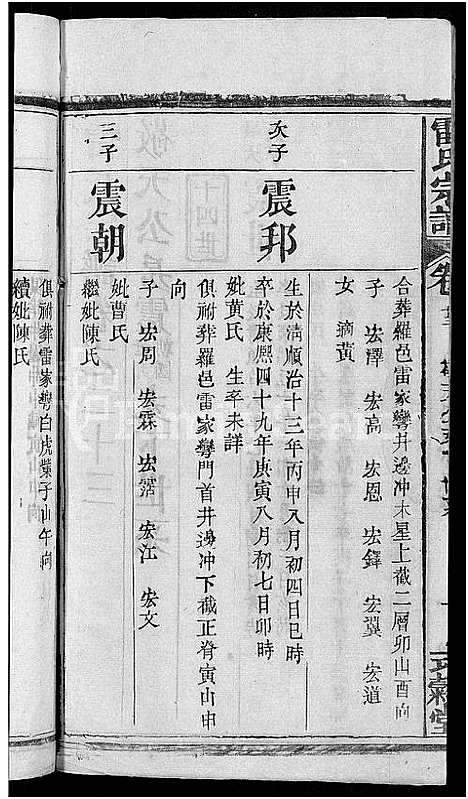 雷氏宗譜
合葬羅邑雷家彎井邊冲木星上截二層卯山酉向
子 宏擇 宏高 宏恩 宏鐸 宏翼 宏道
女 適黃
次子 震邦
生於淸順治十三年丙申八月初四日巳時
卒於康熙四十九年庚寅八月初七日卯時
妣黃氏 生卒未詳
俱祔葬羅邑雷家彎門首井邊冲下截正脊寅山申
向
子 宏周 宏霖 宏 宏江 宏文
三子 震朝
妣曹氏
繼妣陳氏
續妣陳氏
俱祔葬雷家彎白虎嘴子山午向